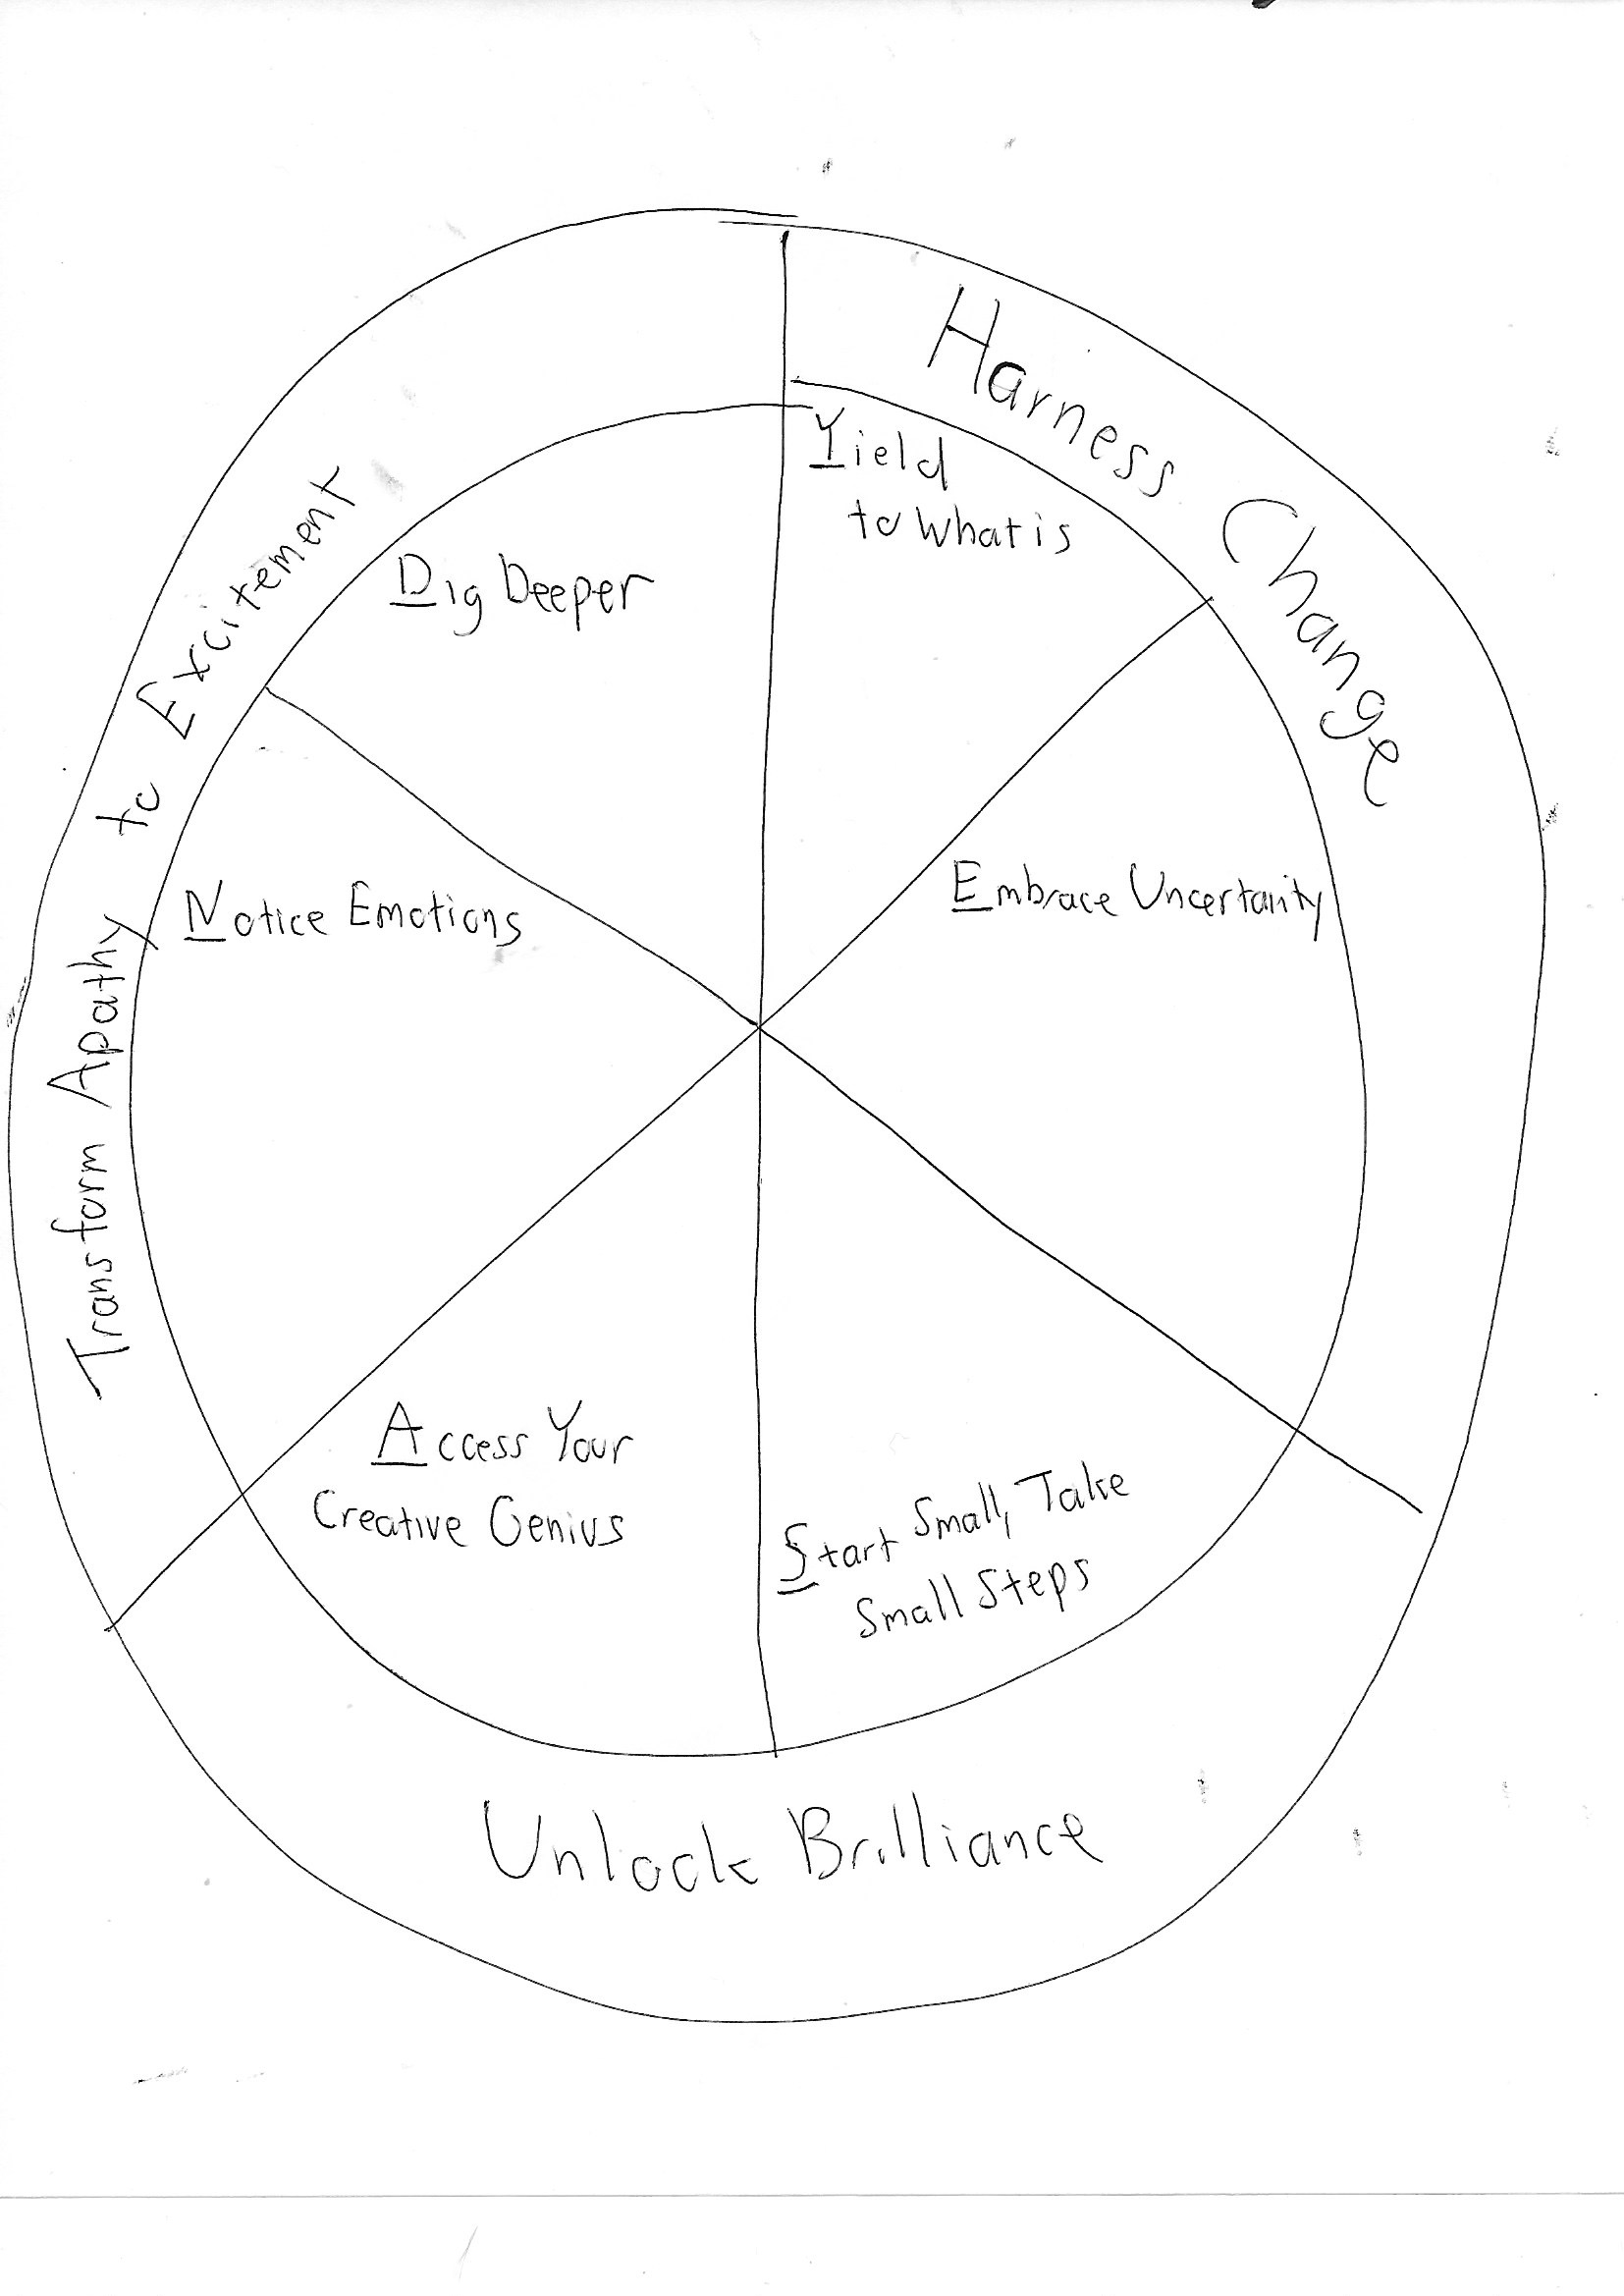 Harness Change
Yield
to What is
Embrace Uncertainity
Start Small, Take
Small Steps
Unlock Brilliance
Access Your
Creative Genius
Notice Emotions
Dig Deeper
Transform Apathy to Excitement